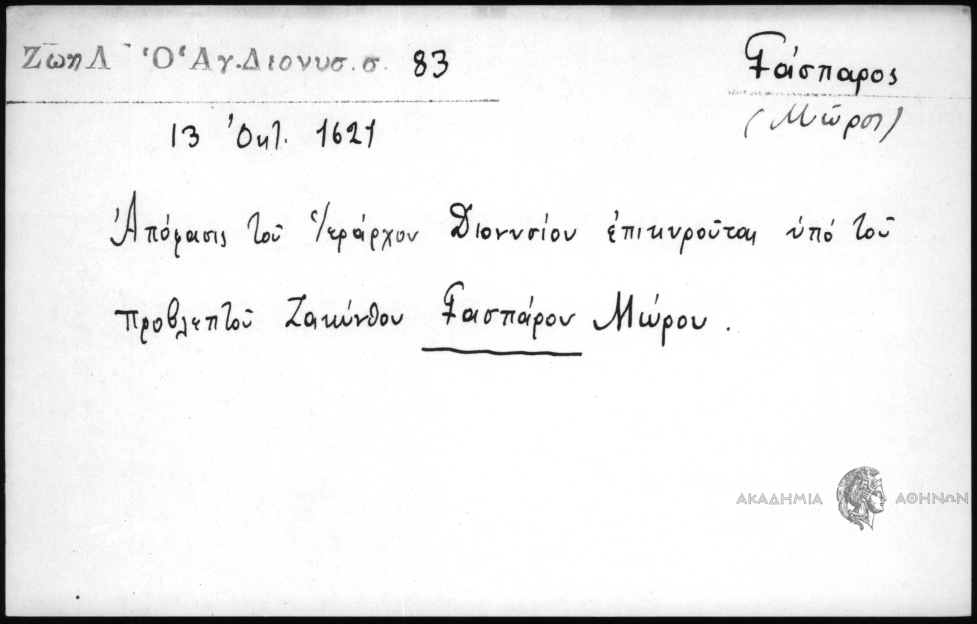 Ζώη Λ Ὁ Ἁγ. Διονυσ. σ. 83
Γάσπαρος
(Μῶρος)
13 Ὀκτ. 1621
Ἀπόφασις τοῦ Ἱεράρχου Διονυσίου ἐπικυροῦται ὑπό τοῦ
προβλεπτοῦ Ζακύνθου Γασπάρου Μώρου.
ΑΚΑΔΗΜΙΑ ΑΘΗΝΩΝ